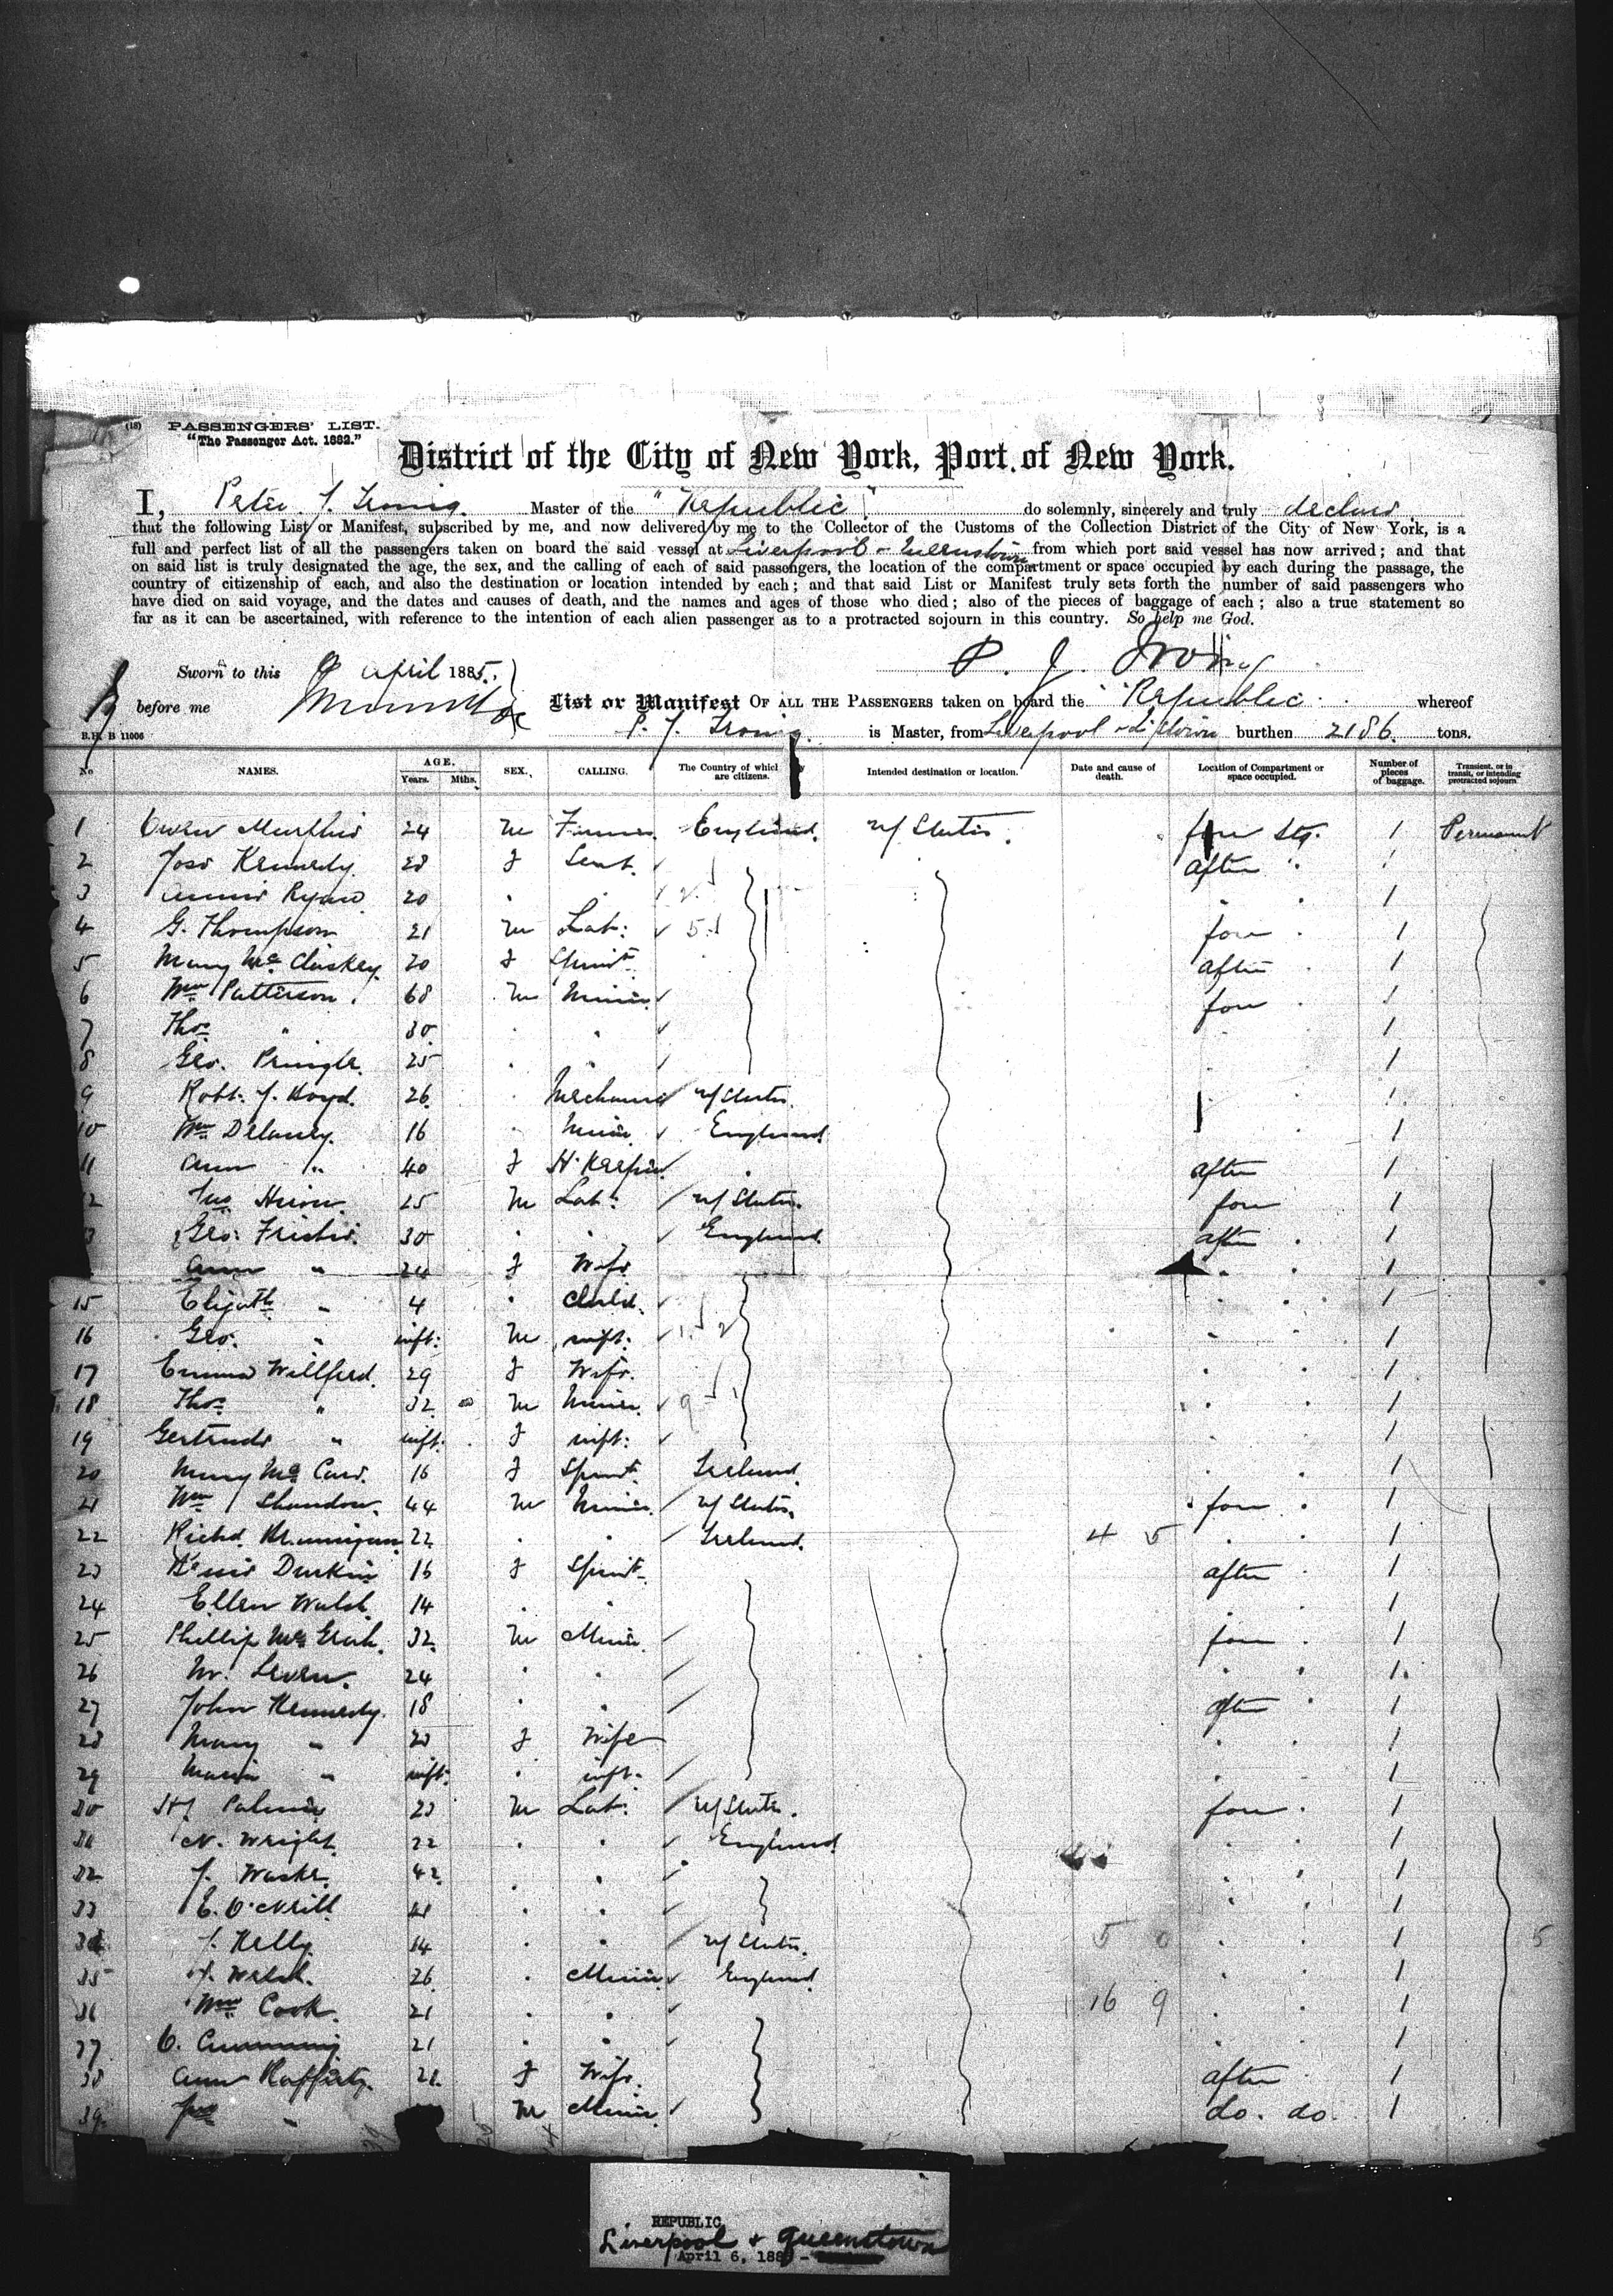 (18) PASSENGERS' LIST.
"The Passenger Act. 1882."
District of the City of New York, Port of New York.
I, Peter J. Irving. Master of the "Republic" do solemnly, sincerely and truly declare
that the following List or Manifest, subscribed by me, and now delivered by me to the Collector of the Customs of the Collection District of the City of New York, is a
full and perfect list of all the passengers taken on board the said vessel at Liverpool & Queenstown from which port said vessel has now arrived; and that
on said list is truly designated the age, the sex, and the calling of each of said passengers, the location of the compartment or space occupied by each during the passage, the
country of citizenship of each, and also the destination or location intended by each; and that said List or Manifest truly sets forth the number of said passengers who
have died on said voyage, and the dates and causes of death, and the names and ages of those who died; also of the pieces of baggage of each; also a true statement so
far as it can be ascertained, with reference to the intention of each alien passenger as to a protracted sojourn in this country. So help me God.
Sworn to this April 1885. P. J. Irving
before me List or Manifest OF ALL THE PASSENGERS taken on board the "Republic" whereof
B.H. B 11006 P. J. Irving. is Master, from Liverpool & Q'stown burthen 2186. tons.
No NAMES. AGE. Years. Mths. SEX. CALLING. The Country of which they are citizens. Intended destination or location. Date and cause of death. Location of Compartment or space occupied. Number of pieces of baggage. Transient, or in transit, or intending protracted sojourn
1 Owen 24 M England. U/States. fore Stg. 1 Permanent
2 Kennedy. 28 F after 1
3 Annie Ryan 20 1
4 G. Thompson 21 M Lab: fore 1
5 Mary McCluskey. 20 F Spinst after 1
6 Wm Patterson. 68 M Miner fore 1
7 Thos " 30 1
8 Geo. Pringle. 25 1
9 Robt. J. Boyd. 26. Mechanic U/States. 1
10 Wm Delaney. 16 Miner England 1
11 Ann " 40 F H. Keeper after 1
12 25 M Lab: U/States. fore 1
13 Geo. 30 England. after 1
Ann " 24 F Wife 1
15 Elizath " 4 Child. 1
16 Geo. " inft: M inft: 1
17 Emma Willferd. 29 F Wife. 1
18 Thos " 32 M Miner. 1
19 Gertrude " inft: F inft: 1
20 Mary 16 F Spinst. Ireland. 1
21 Wm 44 M Miner. U/States. fore 1
22 Richd. 22 Ireland. 4 5 1
23 Durkin 16 F Spinst. after 1
24 Ellen Walsh. 14 1
25 Phillip 32. M Miner. fore 1
26 24 1
27 John Kennedy. 18 after 1
28 Mary " 20 F Wife 1
29 Maria " inft. inft. 1
30 Hy Palmer 23 M Lab: U/States. fore 1
31 N. Wright. 22 England. 1
32 J. 42 1
33 E. O'Neill 1
34 J. Kelly. 14 U/States. 5 0 1 5
35 J. 26 Miner England. 1
36 Wm Cook. 21 16 9 1
37 Cumming 21 1
38 Ann Rafferty. 21. F Wife. after 1
39. " M Miner. do. do. 1
REPUBLIC
Liverpool & Queenstown
April 6, 188